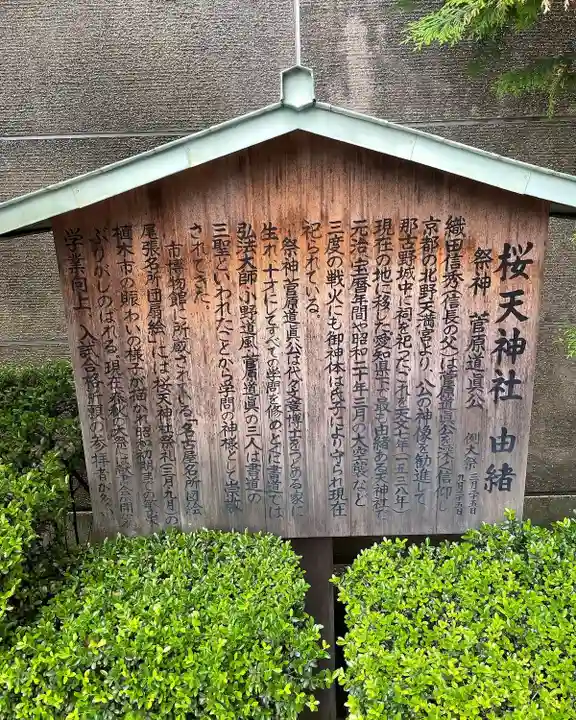 桜天神社 由緒
祭神 菅原道眞公
例大祭 三月二十五日
九月二十五日
織田信秀(信長の父)は菅原道眞公を深く信仰し
京都の北野天満宮より、公の神像を勧進して
那古野城中に祠を祀ったこれを天文七年(一五三八年)
現在の地に移した愛知県下最も由緒ある天神社で
元治、宝暦年間や昭和二十年三月の大空襲など
三度の戦火にも御神体は氏子により守られ現在
祀られている。
祭神菅原道眞公は代々文章博士をつとめる家に
生れ、十才にしてすべての学問を修めとくに書道では
弘法大師、小野道風、菅原道眞の三人は書道の
三聖といわれたことから学問の神様として
されてきた。
市博物館に所蔵されている「名古屋名所図絵
尾張名所団扇絵」には桜天神社祭礼(三月九月)の
植木市の賑わいの様子が描かれ昭和初期までの
ぶりがしのばれる。現在春秋の大祭には
学業向上、入試合格祈願の参拝者が